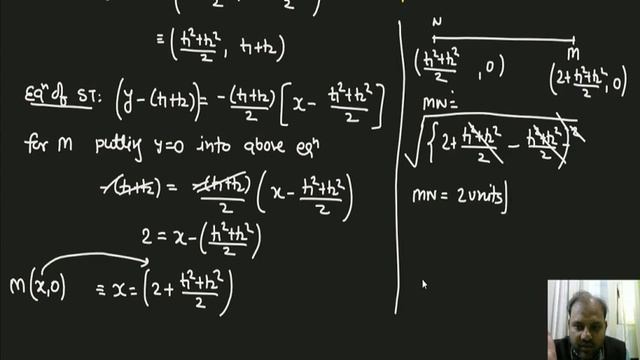 ≡ (t₁²+t₂²/2, t₁+t₂)
Eqⁿ of ST: (y-(t₁+t₂)) = -(t₁+t₂)/2 [x - t₁²+t₂²/2]
for M putting y=0 into above eqⁿ
-(t₁+t₂) = -(t₁+t₂)/2 (x - t₁²+t₂²/2)
2 = x-(t₁²+t₂²/2)
M(x,0) ≡ x = (2+ t₁²+t₂²/2)
N M
(t₁²+t₂²/2, 0) (2+t₁²+t₂²/2, 0)
MN =
√{2+ t₁²+t₂²/2 - t₁²+t₂²/2}²
MN = 2 units